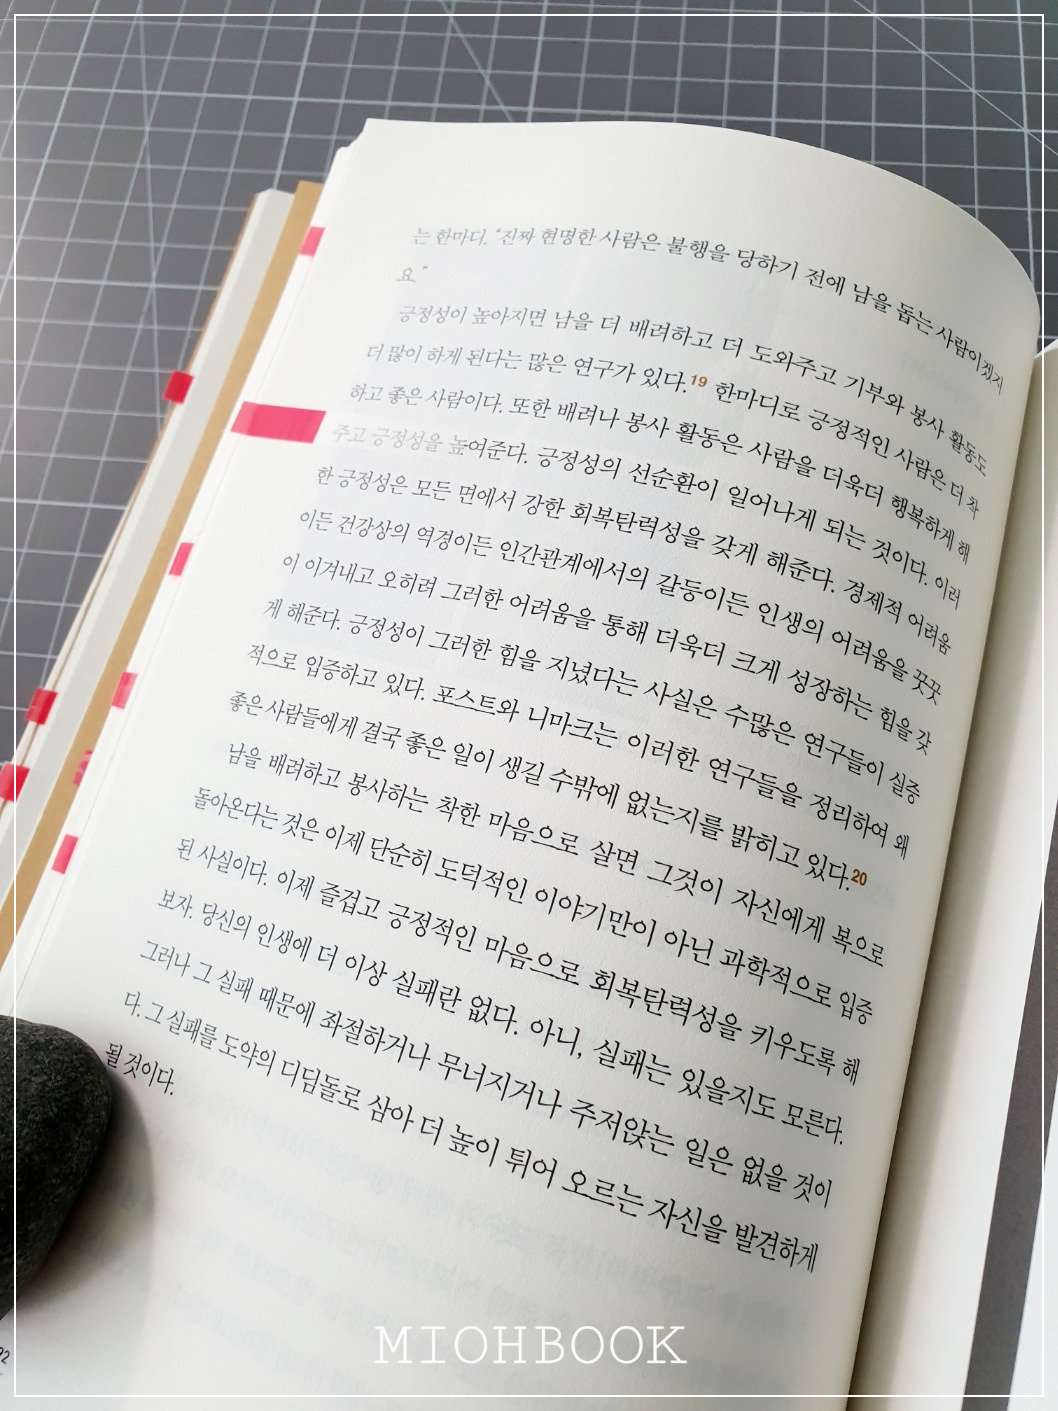 는 한마디. “진짜 현명한 사람은 불행을 당하기 전에 남을 돕는 사람이겠지
요.”
긍정성이 높아지면 남을 더 배려하고 더 도와주고 기부와 봉사 활동도
더 많이 하게 된다는 많은 연구가 있다.19 한마디로 긍정적인 사람은 더 착
하고 좋은 사람이다. 또한 배려나 봉사 활동은 사람을 더욱더 행복하게 해
주고 긍정성을 높여준다. 긍정성의 선순환이 일어나게 되는 것이다. 이러
한 긍정성은 모든 면에서 강한 회복탄력성을 갖게 해준다. 경제적 어려움
이든 건강상의 역경이든 인간관계에서의 갈등이든 인생의 어려움을 꿋꿋
이 이겨내고 오히려 그러한 어려움을 통해 더욱더 크게 성장하는 힘을 갖
게 해준다. 긍정성이 그러한 힘을 지녔다는 사실은 수많은 연구들이 실증
적으로 입증하고 있다. 포스트와 니마크는 이러한 연구들을 정리하여 왜
좋은 사람들에게 결국 좋은 일이 생길 수밖에 없는지를 밝히고 있다.20
남을 배려하고 봉사하는 착한 마음으로 살면 그것이 자신에게 복으로
돌아온다는 것은 이제 단순히 도덕적인 이야기만이 아닌 과학적으로 입증
된 사실이다. 이제 즐겁고 긍정적인 마음으로 회복탄력성을 키우도록 해
보자. 당신의 인생에 더 이상 실패란 없다. 아니, 실패는 있을지도 모른다.
그러나 그 실패 때문에 좌절하거나 무너지거나 주저앉는 일은 없을 것이
다. 그 실패를 도약의 디딤돌로 삼아 더 높이 튀어 오르는 자신을 발견하게
될 것이다.
MIOHBOOK